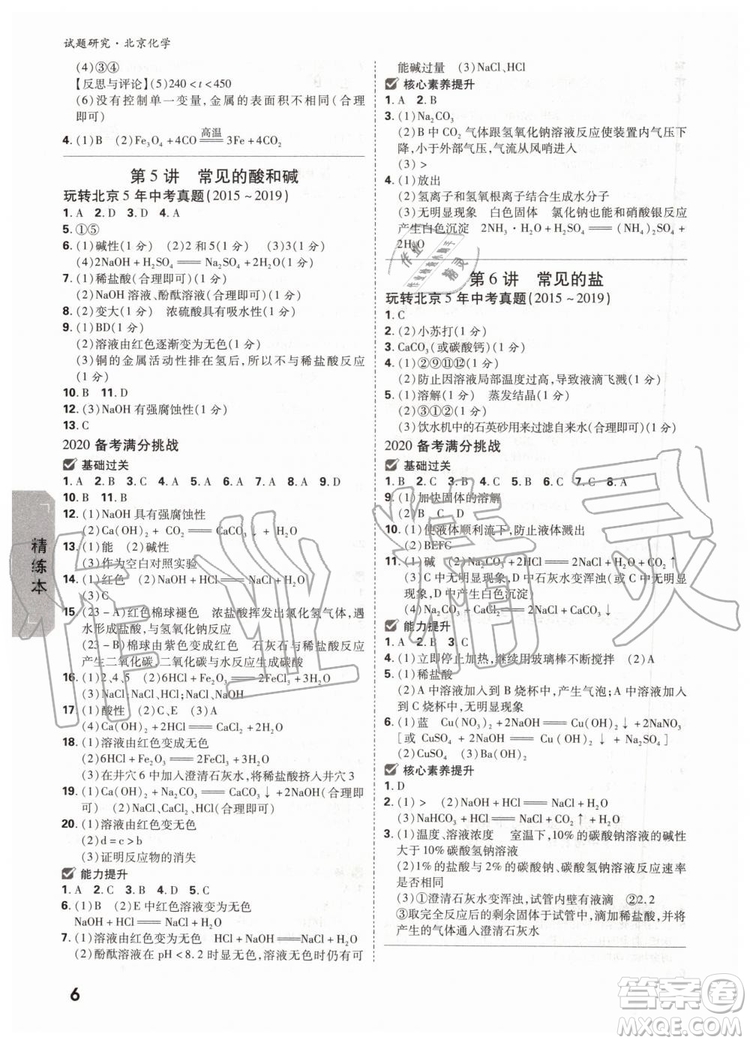 试题研究·北京化学
(4)③④
【反思与评论】(5)240<t<450
(6)没有控制单一变量,金属的表面积不相同(合理
即可)
4. (1)B (2)Fe₃O₄+4CO 高温 3Fe+4CO₂
第5讲 常见的酸和碱
玩转北京5年中考真题(2015~2019)
1. A 2. D 3. B 4. D
5. ①⑤
6. (1)碱性(1分) (2)2和5(1分) (3)3(1分)
(4)2NaOH+H₂SO₄══Na₂SO₄+2H₂O(1分)
7. (1)稀盐酸(合理即可)(1分)
(2)NaOH溶液、酚酞溶液(合理即可)(1分)
8. (2)变大(1分) 浓硫酸具有吸水性(1分)
9. (1)BD(1分)
(2)溶液由红色逐渐变为无色(1分)
(3)铜的金属活动性排在氢后,所以不与稀盐酸反应
(1分)
10. B 11. D
12. (3)NaOH有强腐蚀性(1分)
13. C
2020备考满分挑战
基础过关
1. A 2. B 3. D 4. C 5. A 6. B 7. A 8. C 9. D
10. B 11. D
12. (1)NaOH具有强腐蚀性
(2)Ca(OH)₂+CO₂══CaCO₃↓+H₂O
13. (1)能 (2)碱性
(3)作为空白对照实验
14. (1)红色 (2)NaOH+HCl══NaCl+H₂O
15. (23-A)红色棉球褪色 浓盐酸挥发出氯化氢气体,遇
水形成盐酸,与氢氧化钠反应
(23-B)棉球由紫色变为红色 石灰石与稀盐酸反应
产生二氧化碳,二氧化碳与水反应生成碳酸
16. (1)2、4、5 (2)Fe+H₂SO₄══FeSO₄+H₂↑
17. (1)酸性 (2)C、E (3)A
(4)Ca(OH)₂+CO₂══CaCO₃↓+H₂O
18. (1)溶液由红色变成无色
(2)溶液由红色变成无色
(3)在井穴2中加入澄清石灰水,将稀盐酸挤入井穴3
19. (1)Ca(OH)₂+CO₂══CaCO₃↓+H₂O
(2)NaCl、CaCl₂
20. (1)溶液由红色变为无色
(2)d=c>b
(3)证明反应物的消失
能力提升
1. A 2. C 3. D 4. C 5. C
6. (1)B (2)E中红色溶液变为无色
NaOH+HCl══NaCl+H₂O
7. (1)溶液由红色变为无色 HCl+NaOH══NaCl+H₂O
(2)酚酞溶液在pH<8.2时显无色,盐酸溶液仍有可
能已过量 (3)NaCl、HCl
核心素养提升
1. A 2. B
3. (1)Na₂CO₃
(2)CO₂气体跟氢氧化钠溶液反应使装置内气压下
降,小于外界大气压,气体从风哨进入
(3)>
4. (1)放出
(2)氢离子和氢氧根离子结合生成水分子
(3)无明显现象 白色固体 氯化钠仍能和硝酸银反应
产生白色沉淀 2NH₃·H₂O+H₂SO₄══(NH₄)₂SO₄+2H₂O
第6讲 常见的盐
玩转北京5年中考真题(2015~2019)
1. C
2. (2)小苏打(1分)
3. CaCO₃(或碳酸钙)(1分)
4. (1)②⑨⑪⑫(1分)
(2)防止因溶液局部温度过高,导致液滴飞溅(1分)
5. (1)溶解(1分) 蒸发结晶(1分)
(2)③(1分)
(3)饮水机中的石英砂作用只是过滤(1分)
2020备考满分挑战
基础过关
1. A 2. D 3. B 4. C 5. D 6. B 7. C 8. A
9. (1)加快固体的溶解
(2)B D C
10. (1)使液体顺利流下,防止液体溅出
(2)BEFC
11. (1)碱 (2)Na₂CO₃+2HCl══2NaCl+H₂O+CO₂↑
(3)C中无明显现象,D中石灰水变浑浊(或C中石灰
水变浑浊,D中无明显现象)
(4)Na₂CO₃+Ca(OH)₂══CaCO₃↓+2NaOH
12. (1)产生白色沉淀
(2)Na₂CO₃
能力提升
1. A 2. B 3. D
4. (1)立即停止加热,继续用玻璃棒不断搅拌 (2)C
5. (1)稀盐酸
(2)将稀盐酸加入到B烧杯中,产生气泡;与A烧杯
中液体混合,产生白色沉淀
6. (1)蓝 Cu(NO₃)₂+2NaOH══Cu(OH)₂↓+2NaNO₃
[或 CuSO₄+2NaOH══Cu(OH)₂↓+Na₂SO₄]
(2)CuSO₄ (3)Ba(OH)₂
核心素养提升
1. D
2. (1)> (2)NaOH+HCl══NaCl+H₂O
(3)NaHCO₃+HCl══NaCl+H₂O+CO₂↑
3. (1)温度、溶液浓度 室温下,10%的碳酸钠溶液的碱性
大于10%碳酸氢钠溶液
(2)1%的盐酸与碳酸钠、碳酸氢钠溶液反应速率是
否相同(合理即可)
(3)①澄清石灰水变浑浊,试管内壁有液滴 ②2.2
③取完全反应后的剩余固体于试管中,滴加稀盐酸,并
将产生的气体通入澄清石灰水
精练本
6
作业精灵
答案圈